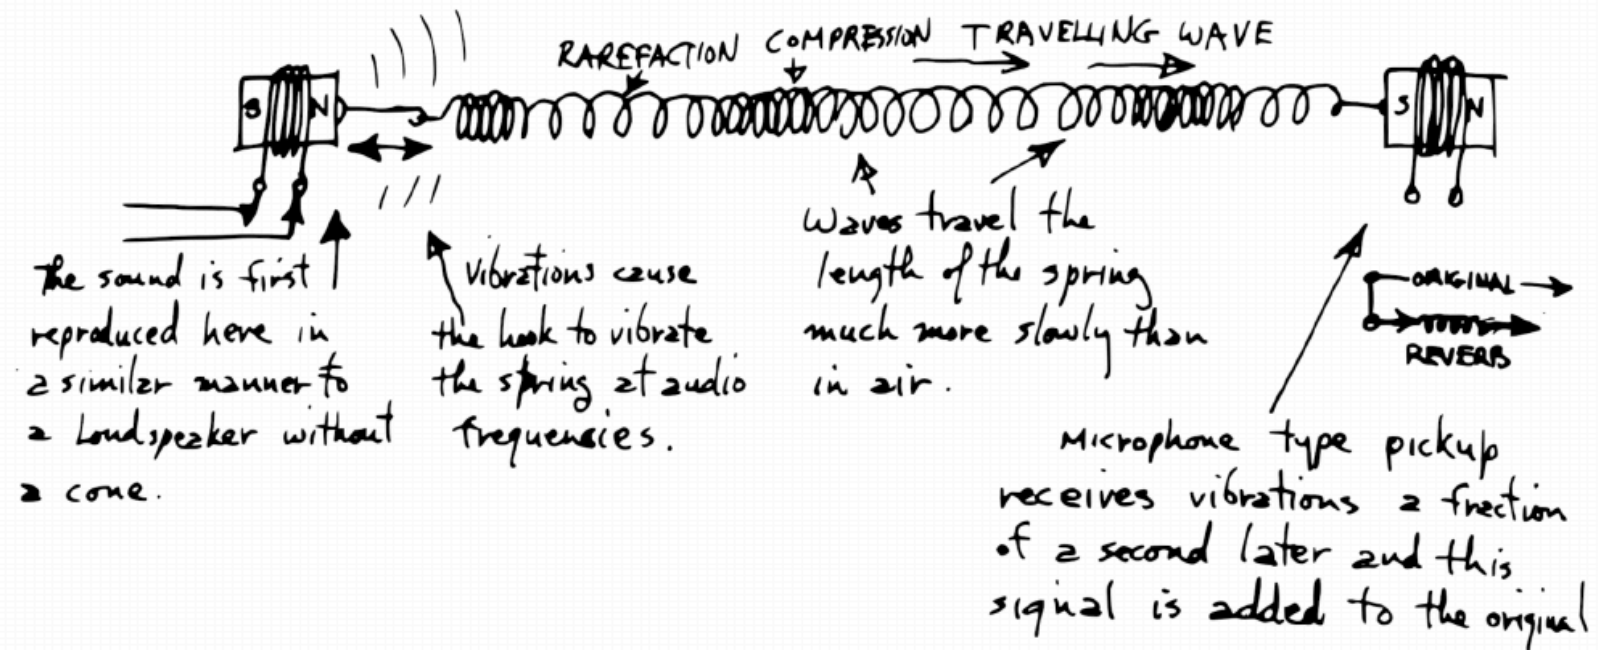 RAREFACTION COMPRESSION TRAVELLING WAVE
S N
S N
The sound is first
reproduced here in
a similar manner to
a Loudspeaker without
a cone.
Vibrations cause
the hook to vibrate
the spring at audio
frequencies.
Waves travel the
length of the spring
much more slowly than
in air.
ORIGINAL
REVERB
Microphone type pickup
receives vibrations a fraction
of a second later and this
signal is added to the original